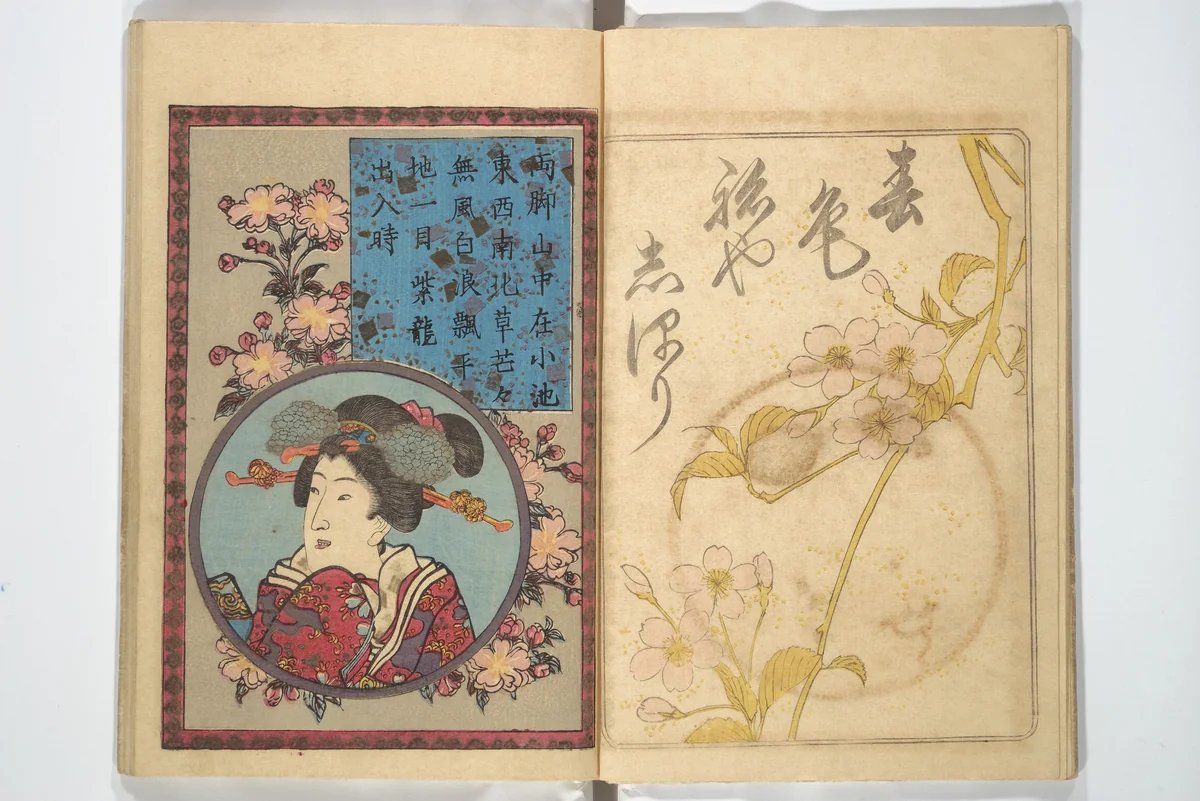 春
色
祢や
志本り
両脚山中在小池
東西南北草芒々
無風白浪飄平
地一目紫龍
出入時